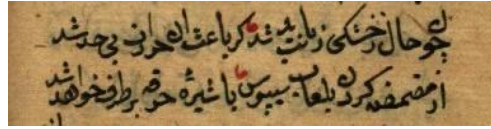 چو حال زخشکی زبانت بد شد کر باعث آن حرارت بیحد شد
از مضمضه کردن بلعاب سپیوس با شیره خرفه برطرف خواهد شد